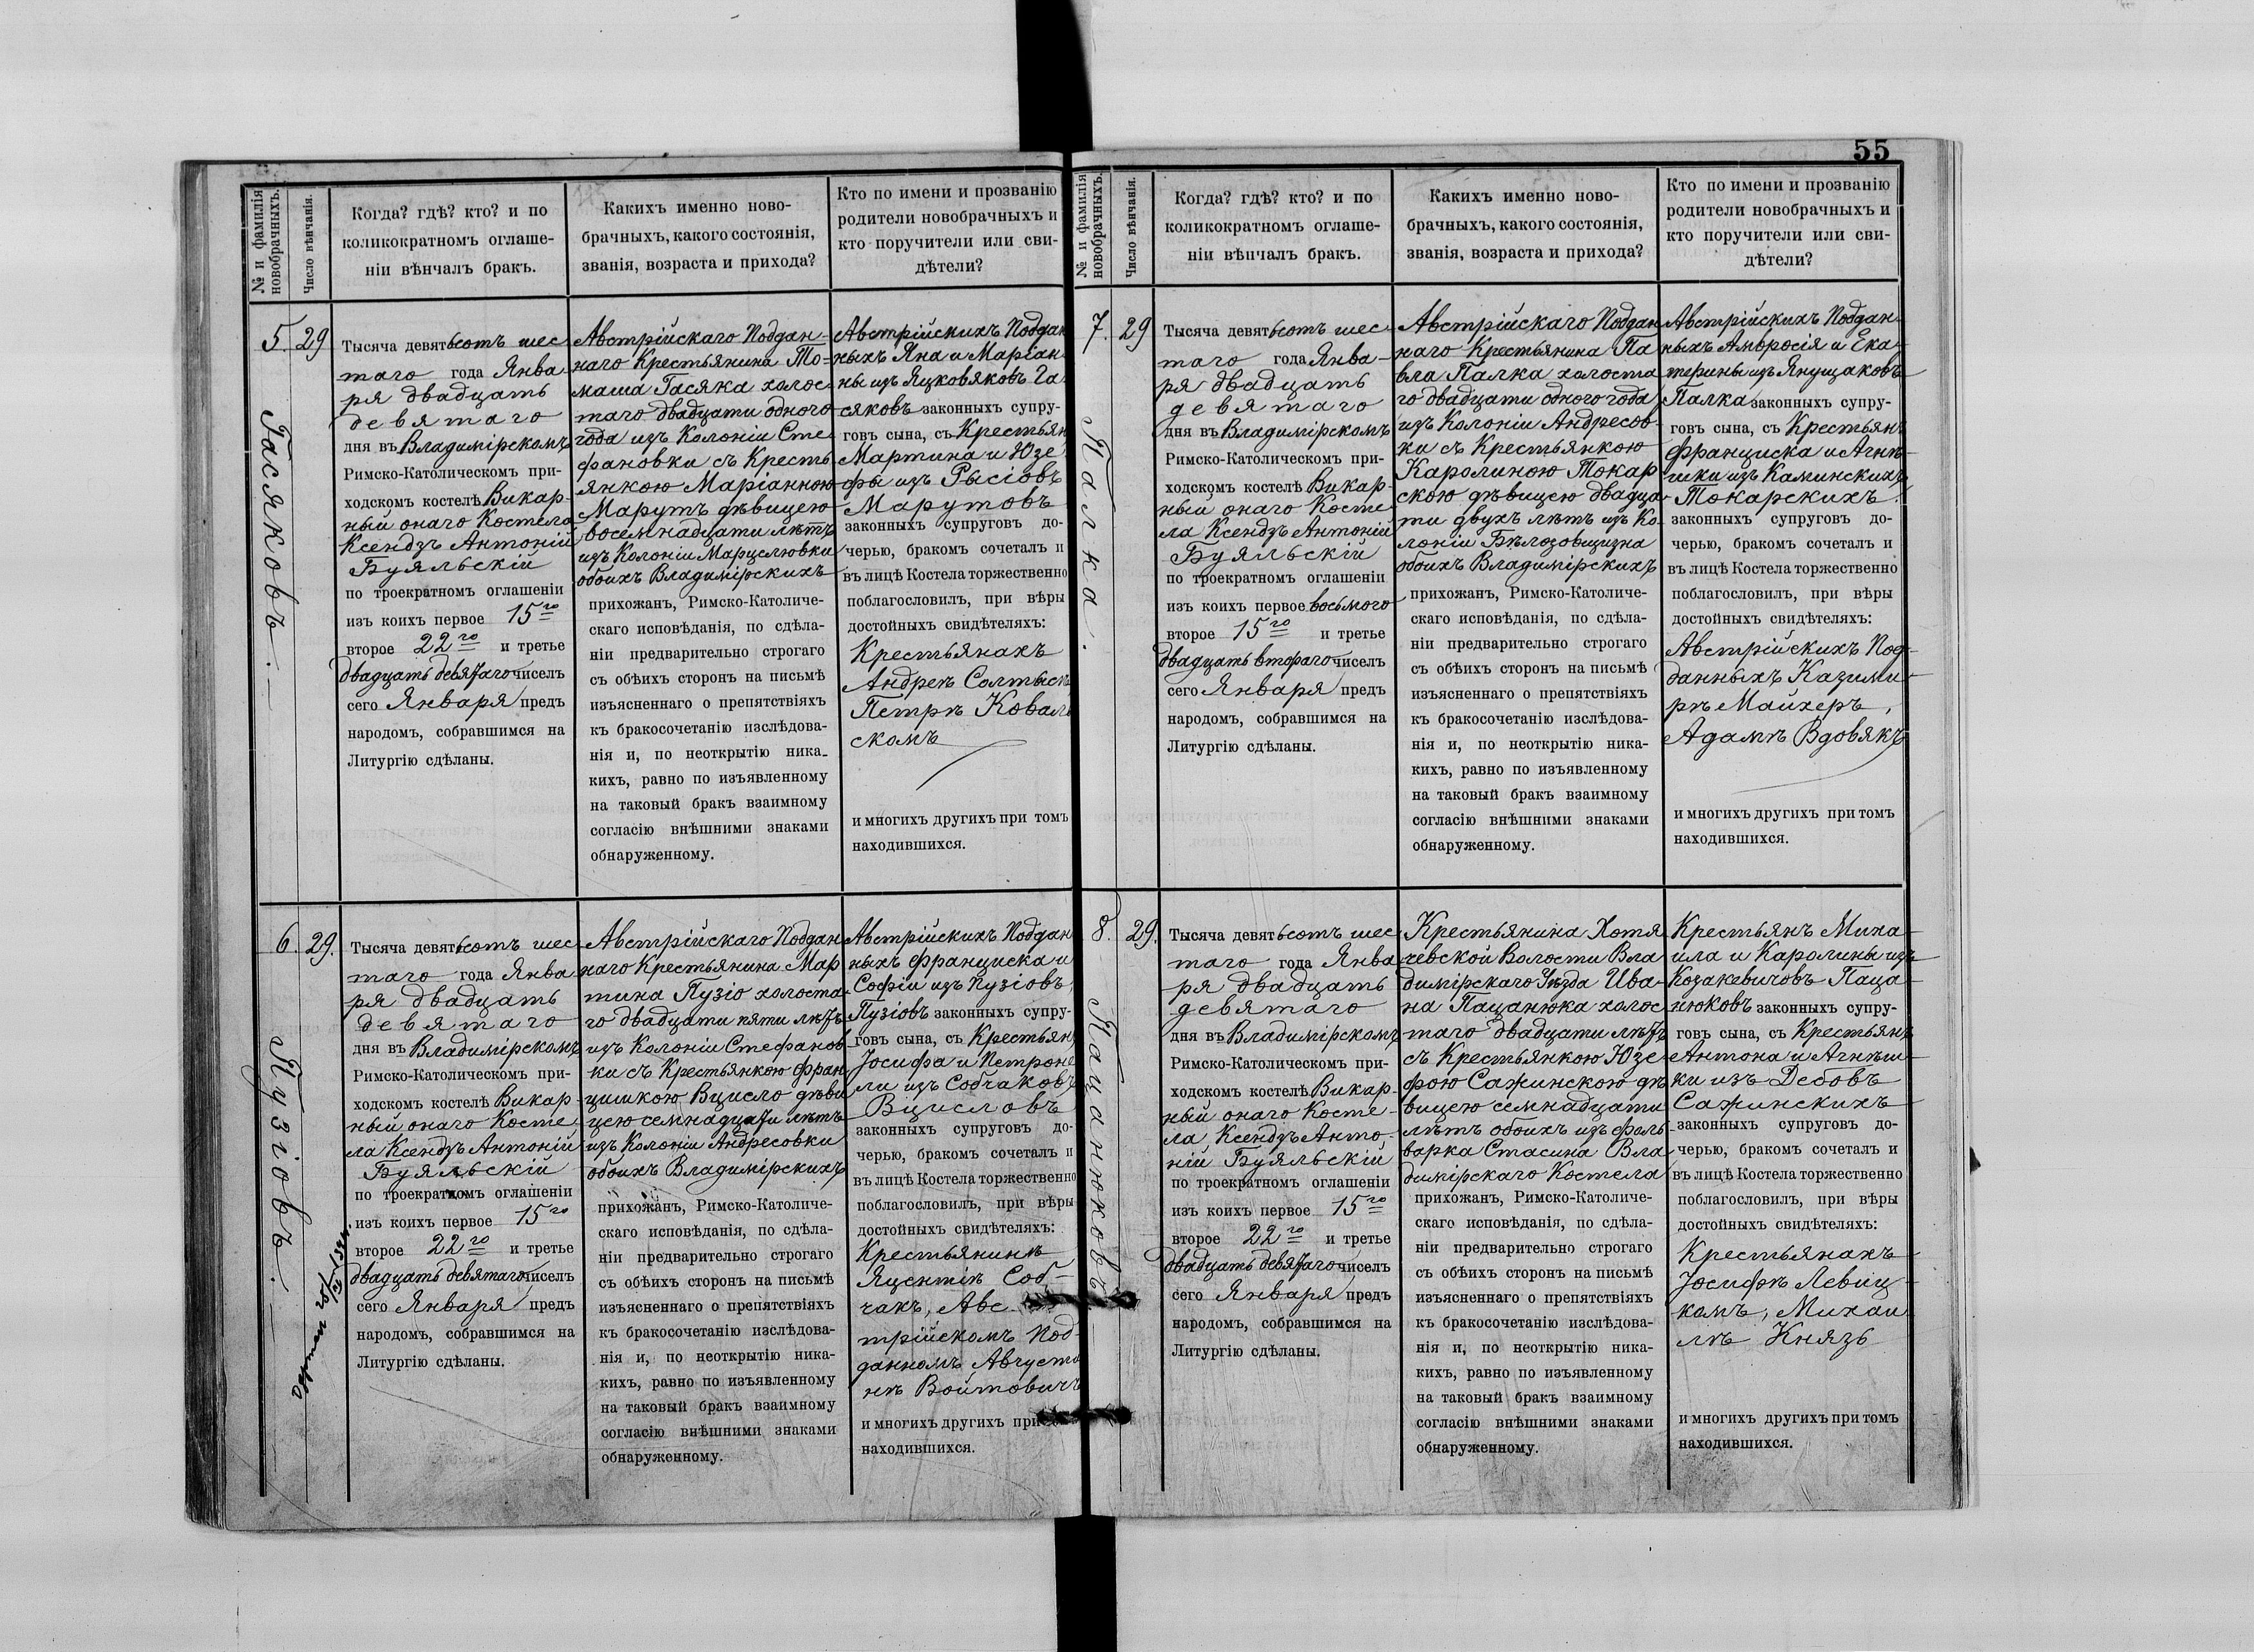 55
№ и фамилія
новобрачныхъ.
Число вѣнчанія.
Когда? гдѣ? кто? и по
коликократномъ оглаше-
ніи вѣнчалъ бракъ.
Какихъ именно ново-
брачныхъ, какого состоянія,
званія, возраста и прихода?
Кто по имени и прозванію
родители новобрачныхъ и
кто поручители или сви-
дѣтели?
5.
29
Гасяковъ.
Тысяча девятьсотъ шес
таго года Янва
ря двадцать
девятаго
дня въ Владимірскомъ
Римско-Католическомъ при-
ходскомъ костелѣ Викар-
ный онаго Костела
Ксендзъ Антоній
Буяльскій
по троекратномъ оглашеніи
изъ коихъ первое 15го
второе 22го и третье
двадцать девятаго чиселъ
сего Января предъ
народомъ, собравшимся на
Литургію сдѣланы.
Австрійскаго Поддан-
наго Крестьянина То-
маша Гасяка холос
таго двадцати одного
года изъ Колоніи Сте
фановки съ Кресть
янкою Маріанною
Марутъ дѣвицею
восемнадцати лѣтъ
изъ Колоніи Марцелювки
обоихъ Владимірскихъ
прихожанъ, Римско-Католиче-
скаго исповѣданія, по сдѣла-
ніи предварительно строгаго
съ обѣихъ сторонъ на письмѣ
изъясненнаго о препятствіяхъ
къ бракосочетанію изслѣдова-
нія и, по неоткрытію ника-
кихъ, равно по изъявленному
на таковый бракъ взаимному
согласію внѣшними знаками
обнаруженному.
Австрійскихъ Поддан
ныхъ Яна и Маріан
ны изъ Яцковяковъ Га
сяковъ законныхъ супру-
говъ сына, съ Крестьян
Мартина и Юзе
фы изъ Рысіовъ
Марутовъ
законныхъ супруговъ до-
черью, бракомъ сочеталъ и
въ лицѣ Костела торжественно
поблагословилъ, при вѣры
достойныхъ свидѣтеляхъ:
Крестьянахъ
Андреѣ Солтысѣ
Петрѣ Коваль
скомъ
и многихъ другихъ при томъ
находившихся.
6.
29.
Пузіовъ.
Тысяча девятьсотъ шес
таго года Янва
ря двадцать
девятаго
дня въ Владимірскомъ
Римско-Католическомъ при-
ходскомъ костелѣ Викар-
ный онаго Косте
ла Ксендзъ Антоній
Буяльскій
по троекратномъ оглашеніи
изъ коихъ первое 15го
второе 22го и третье
двадцать девятаго чиселъ
сего Января предъ
народомъ, собравшимся на
Литургію сдѣланы.
Австрійскаго Поддан
наго Крестьянина Мар
тина Пузіо холоста
го двадцати пяти лѣтъ
изъ Колоніи Стефанов
ки съ Крестьянкою Фран
цишкою Вцисло дѣви
цею семнадцати лѣтъ
изъ Колоніи Андресовки
обоихъ Владимірскихъ
прихожанъ, Римско-Католиче-
скаго исповѣданія, по сдѣла-
ніи предварительно строгаго
съ обѣихъ сторонъ на письмѣ
изъясненнаго о препятствіяхъ
къ бракосочетанію изслѣдова-
нія и, по неоткрытію ника-
кихъ, равно по изъявленному
на таковый бракъ взаимному
согласію внѣшними знаками
обнаруженному.
Австрійскихъ Поддан
ныхъ Франциска и
Софіи изъ Пузіовъ
Пузіовъ законныхъ супру-
говъ сына, съ Крестьян
Іосифа и Петроне
ли изъ Собчаковъ
Вцисловъ
законныхъ супруговъ до-
черью, бракомъ сочеталъ и
въ лицѣ Костела торжественно
поблагословилъ, при вѣры
достойныхъ свидѣтеляхъ:
Крестьянинѣ
Яцентіѣ Соб-
чакъ, Авс
трійскомъ Под-
данномъ Августи
нѣ Войтовичъ
и многихъ другихъ при
находившихся.
№ и фамилія
новобрачныхъ.
Число вѣнчанія.
Когда? гдѣ? кто? и по
коликократномъ оглаше-
ніи вѣнчалъ бракъ.
Какихъ именно ново-
брачныхъ, какого состоянія,
званія, возраста и прихода?
Кто по имени и прозванію
родители новобрачныхъ и
кто поручители или сви-
дѣтели?
7.
29
Палка.
Тысяча девятьсотъ шес
таго года Янва-
ря двадцать
девятаго
дня въ Владимірскомъ
Римско-Католическомъ при-
ходскомъ костелѣ Викар-
ный онаго Косте
ла Ксендзъ Антоній
Буяльскій
по троекратномъ оглашеніи
изъ коихъ первое восьмого
второе 15го и третье
двадцать втораго чиселъ
сего Января предъ
народомъ, собравшимся на
Литургію сдѣланы.
Австрійскаго Поддан
наго Крестьянина Па
вла Палка холоста
го двадцати одного года
изъ Колоніи Андресов-
ки съ Крестьянкою
Каролиною Токар
скою дѣвицею двадца
ти двухъ лѣтъ изъ Ко
лоніи Бѣлозовщизна
обоихъ Владимірскихъ
прихожанъ, Римско-Католиче-
скаго исповѣданія, по сдѣла-
ніи предварительно строгаго
съ обѣихъ сторонъ на письмѣ
изъясненнаго о препятствіяхъ
къ бракосочетанію изслѣдова-
нія и, по неоткрытію ника-
кихъ, равно по изъявленному
на таковый бракъ взаимному
согласію внѣшними знаками
обнаруженному.
Австрійскихъ Поддан-
ныхъ Амвросія и Ека-
терины изъ Янущаковъ
Палка законныхъ супру-
говъ сына, съ Крестьянъ
Франциска и Агнѣ-
шки изъ Каминскихъ
Токарскихъ.
законныхъ супруговъ до-
черью, бракомъ сочеталъ и
въ лицѣ Костела торжественно
поблагословилъ, при вѣры
достойныхъ свидѣтеляхъ:
Австрійскихъ Под-
данныхъ Казими-
рѣ Майхеръ,
Адамѣ Вдовякъ
и многихъ другихъ при томъ
находившихся.
8.
29.
Пацанюковъ
Тысяча девятьсотъ шес
таго года Янва
ря двадцать
девятаго
дня въ Владимірскомъ
Римско-Католическомъ при-
ходскомъ костелѣ Викар-
ный онаго Косте-
ла, Ксендзъ Анто-
ній Буяльскій
по троекратномъ оглашеніи
изъ коихъ первое 15го
второе 22го и третье
двадцать девятаго чиселъ
сего Января предъ
народомъ, собравшимся на
Литургію сдѣланы.
Крестьянина Хотя
чевской Волости Вла
димірскаго Уѣзда Ива-
на Пацанюка холос
таго двадцати лѣтъ
съ Крестьянкою Юзе
фою Сажинскою дѣ
вицею семнадцати
лѣтъ обоихъ изъ фоль
варка Стасина Вла
димірскаго Костела
прихожанъ, Римско-Католиче-
скаго исповѣданія, по сдѣла-
ніи предварительно строгаго
съ обѣихъ сторонъ на письмѣ
изъясненнаго о препятствіяхъ
къ бракосочетанію изслѣдова-
нія и, по неоткрытію ника-
кихъ, равно по изъявленному
на таковый бракъ взаимному
согласію внѣшними знаками
обнаруженному.
Крестьянъ Миха-
ила и Каролины изъ
Козакевичовъ Паца-
нюковъ законныхъ супру-
говъ сына, съ Крестьянъ
Антона и Агнѣш-
ки изъ Дебовъ
Сажинскихъ
законныхъ супруговъ до-
черью, бракомъ сочеталъ и
въ лицѣ Костела торжественно
поблагословилъ, при вѣры
достойныхъ свидѣтеляхъ:
Крестьянахъ
Іосифѣ Левиц-
комъ, Михаи
лѣ Князь
и многихъ другихъ при томъ
находившихся.